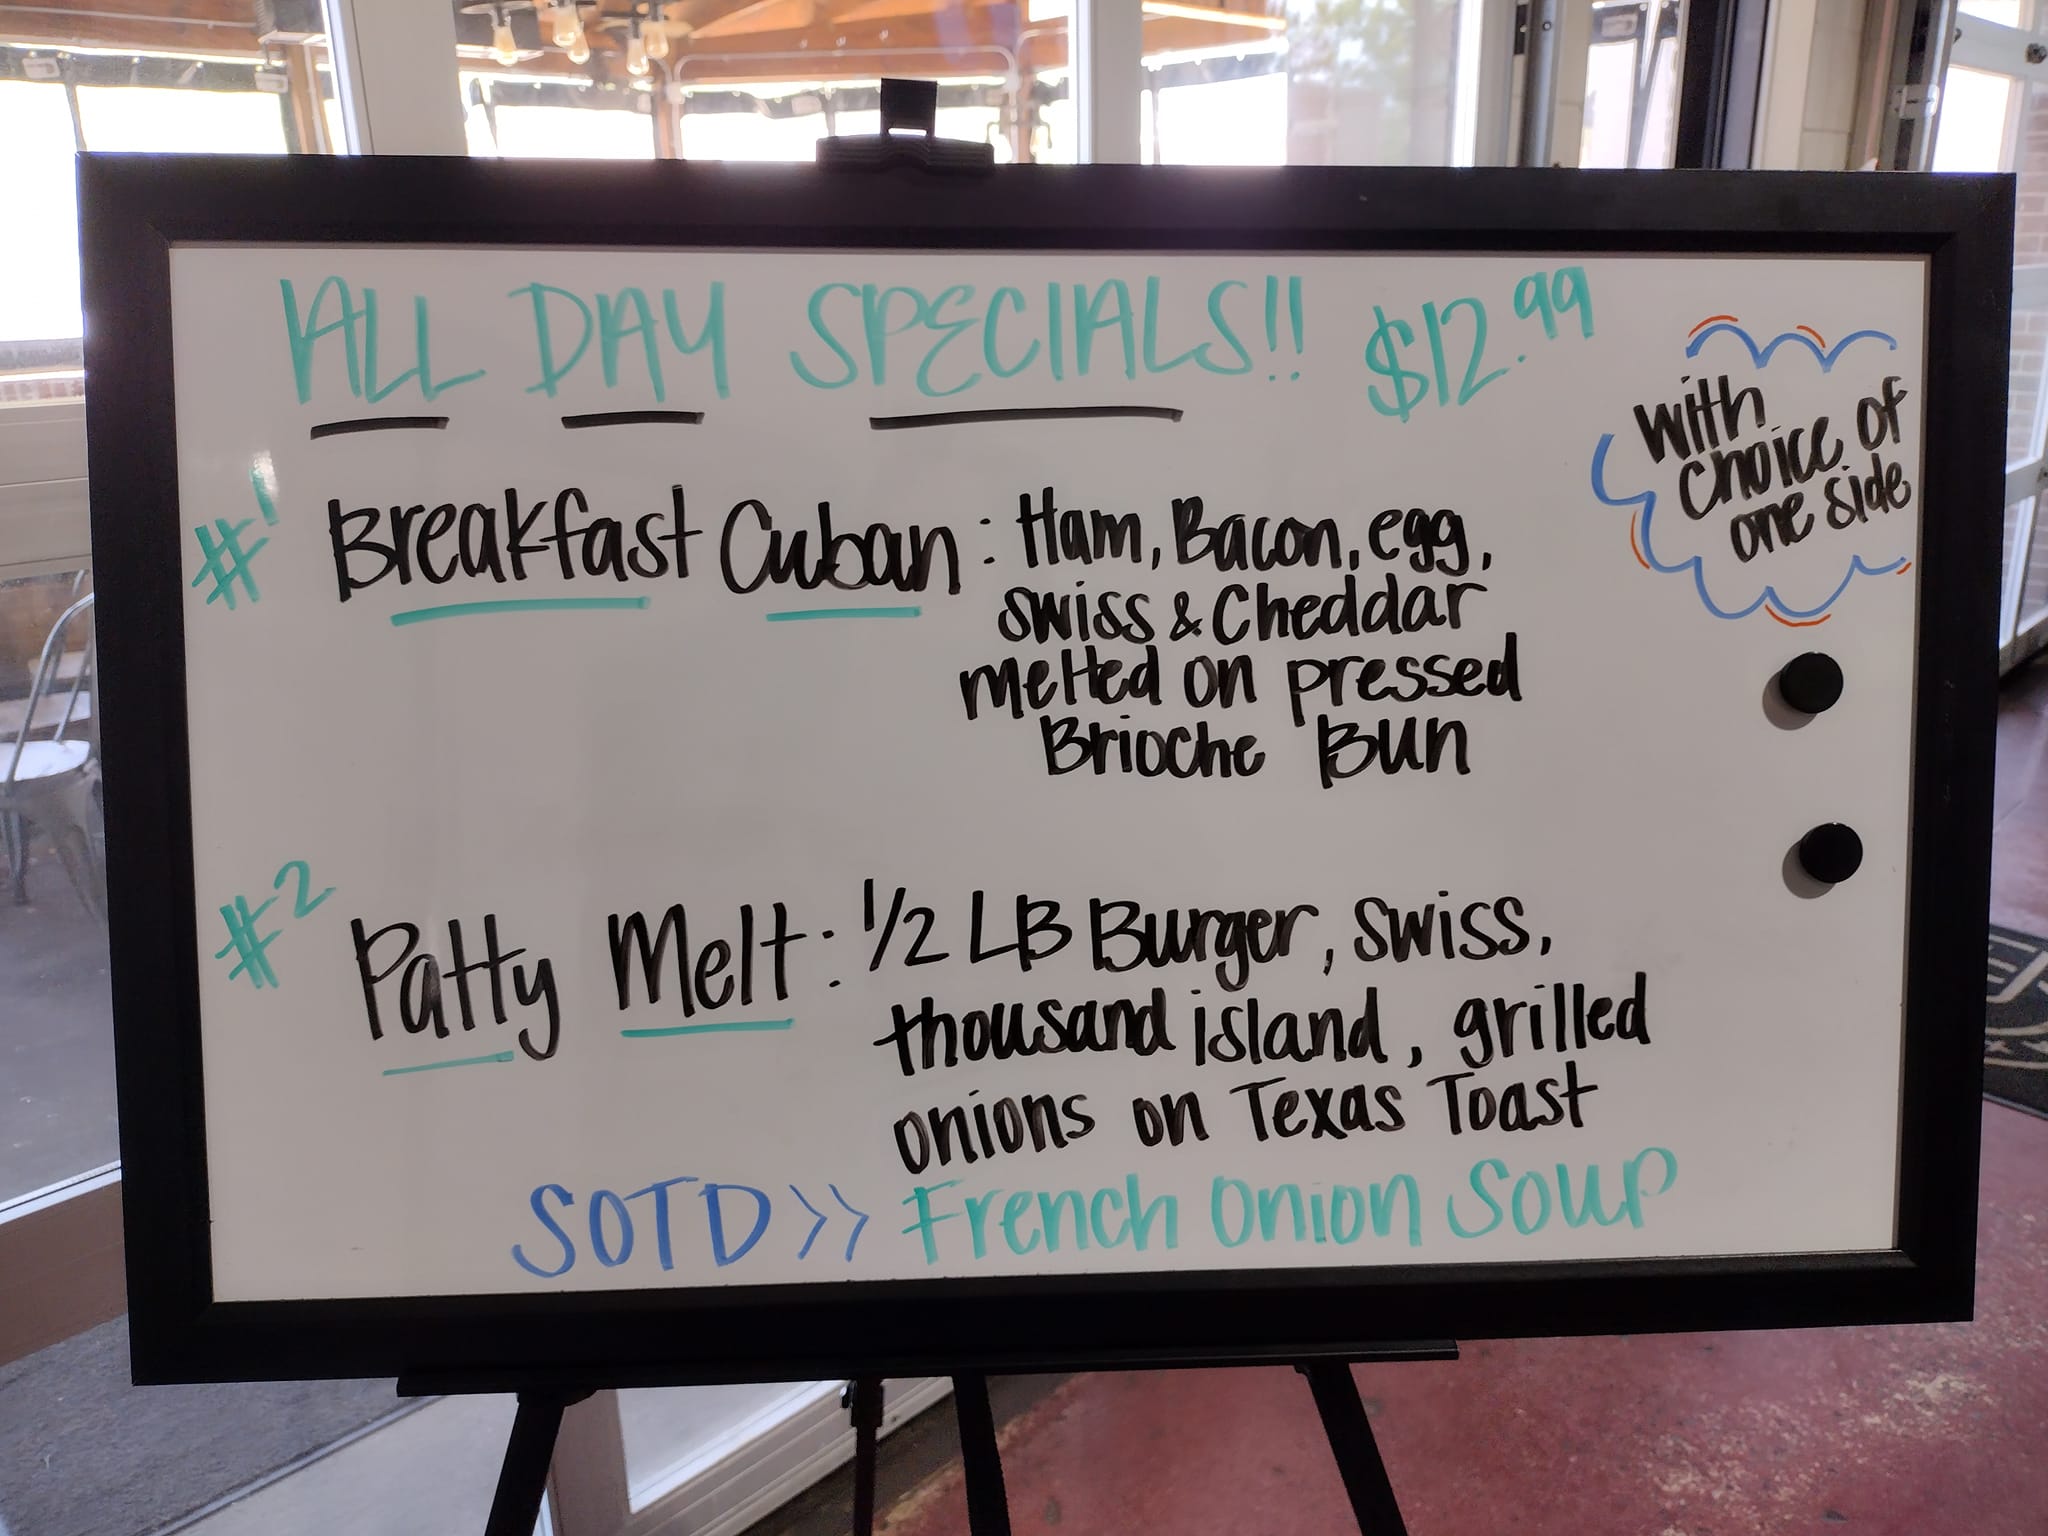 ALL DAY SPECIALS!! $12.99
with
choice of
one side
#1 Breakfast Cuban: Ham, Bacon, egg,
swiss & Cheddar
melted on pressed
Brioche Bun
#2 Patty Melt: 1/2 LB Burger, swiss,
thousand island, grilled
onions on Texas Toast
SOTD>> French Onion Soup